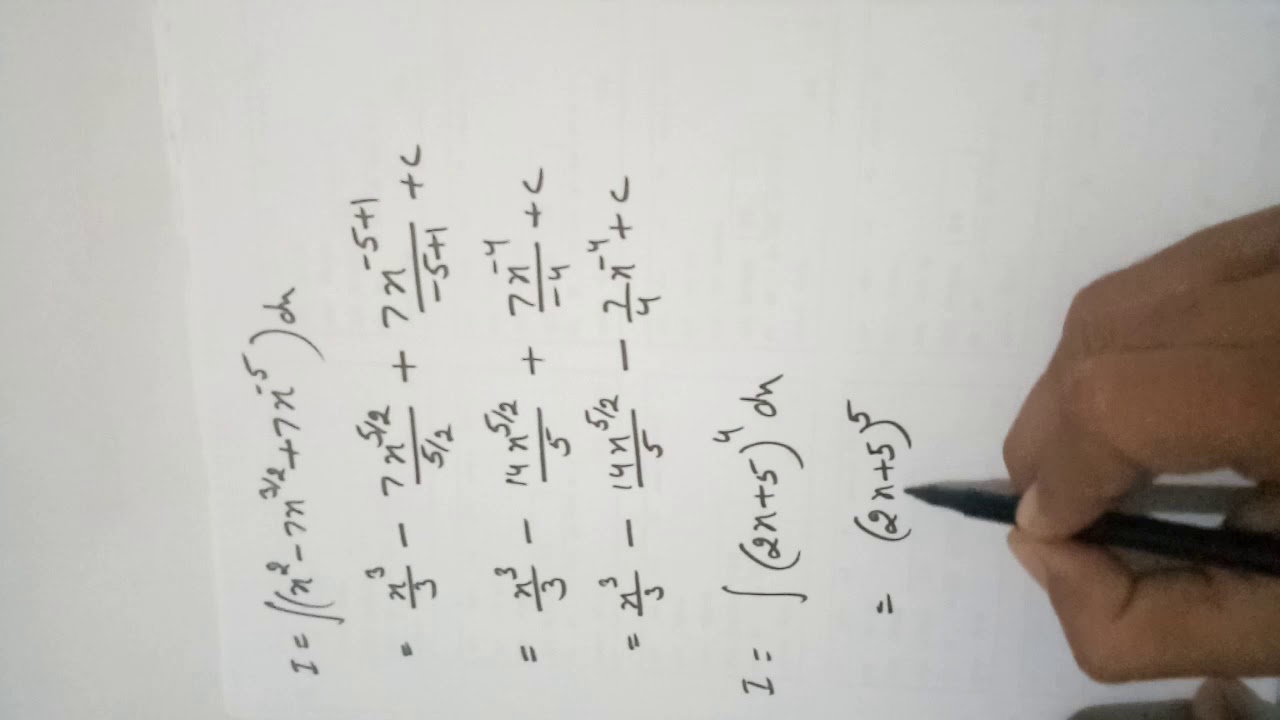 I = ∫(x² - 7x^3/2 + 7x^-5) dx
= x³/3 - 7x^5/2 / 5/2 + 7x^-5+1 / -5+1 + c
= x³/3 - 14x^5/2 / 5 + 7x^-4 / -4 + c
= x³/3 - 14x^5/2 / 5 - 7/4 x^-4 + c
I = ∫ (2x+5)^4 dx
= (2x+5)^5